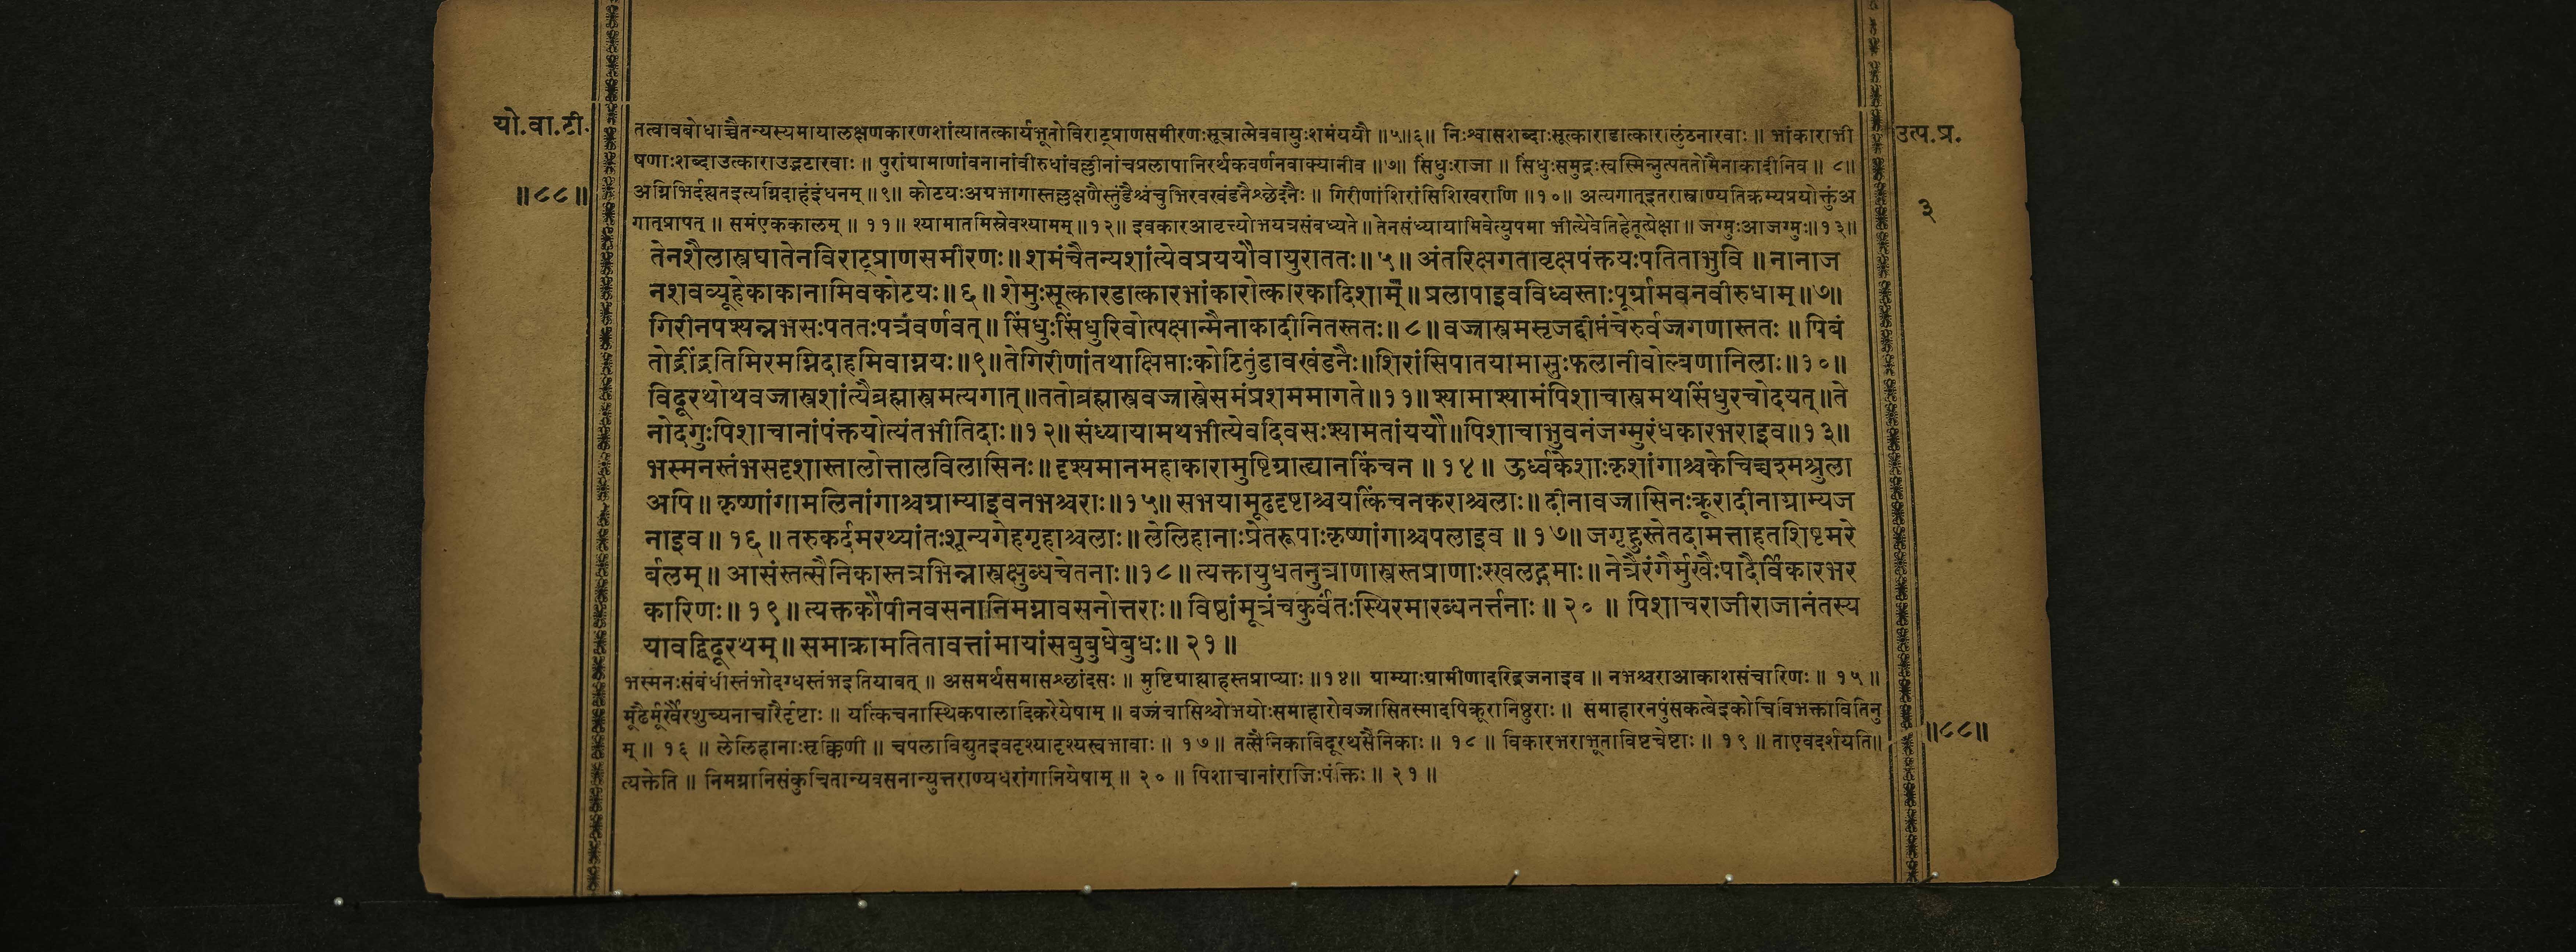 यो.वा.टी.
॥८८॥
तत्वावबोधाच्चैतन्यस्यमायालक्षणकारणशांत्यातत्कार्यभूतोविराट्प्राणसमीरणःसूत्रात्मेववायुःशमंययौ ॥५॥६॥ निःश्वासशब्दाःसूत्काराडात्कारालुंठनारवाः ॥ भांकाराभी
षणाःशब्दाउत्काराउद्भटारवाः ॥ पुरांग्रामाणांवनानांवीरुधांवल्लीनांचप्रलापानिरर्थकवर्णनवाक्यानीव ॥७॥ सिंधुःराजा ॥ सिंधुःसमुद्रःस्वस्मिन्नुत्पततोमैनाकादीनिव ॥ ८॥
अग्निभिर्दह्यतइत्यग्निदाहंइंधनम् ॥९॥ कोटयःअग्रभागास्तल्लक्षणैस्तुंडैश्चंचुभिरवखंडनैश्छेदनैः ॥ गिरीणांशिरांसिशिखराणि ॥१०॥ अत्यगात्इतरास्त्राण्यतिक्रम्यप्रयोक्तुंअ
गात्प्रापत् ॥ समंएककालम् ॥ ११॥ श्यामातमिस्रेवश्यामम् ॥१२॥ इवकारआवृत्त्योभयत्रसंबध्यते ॥ तेनसंध्यायामिवेत्युपमा भीत्येवेतिहेतूत्प्रेक्षा ॥ जग्मुःआजग्मुः॥१३॥
तेनशैलास्त्रघातेनविराट्प्राणसमीरणः॥ शमंचैतन्यशांत्येवप्रययौवायुराततः॥ ५॥ अंतरिक्षगतावृक्षपंक्तयःपतिताभुवि ॥ नानाज
नशवव्यूहेकाकानामिवकोटयः॥ ६॥ शेमुःसूत्कारडात्कारभांकारोत्कारकादिशाम्॥ प्रलापाइवविध्वस्ताःपूर्ग्रामवनवीरुधाम्॥७॥
गिरीनपश्यन्नभसःपततःपत्रंवर्णवत्॥ सिंधुःसिंधुरिवोत्पक्षान्मैनाकादीनितस्ततः॥ ८॥ वज्रास्त्रमसृजद्दीप्तंचेरुर्वज्रगणास्ततः ॥ पिबं
तोद्रींद्रतिमिरमग्निदाहमिवाग्नयः॥९॥तेगिरीणांतथाक्षिप्ताःकोटितुंडावखंडनैः॥शिरांसिपातयामासुःफलानीवोल्बणानिलाः॥१०॥
विदूरथोथवज्रास्त्रशांत्यैब्रह्मास्त्रमत्यगात्॥ततोब्रह्मास्त्रवज्रास्त्रेसमंप्रशममागते॥११॥श्यामाश्यामंपिशाचास्त्रमथसिंधुरचोदयत्॥ते
नोदगुःपिशाचानांपंक्तयोत्यंतभीतिदाः॥१२॥ संध्यायामथभीत्येवदिवसःश्यामतांययौ॥पिशाचाभुवनंजग्मुरंधकारभराइव॥१३॥
भस्मनस्तंभसदृशास्तालोत्तालविलासिनः॥ दृश्यमानमहाकारामुष्टिग्राह्यानकिंचन ॥ १४॥ ऊर्ध्वकेशाःकृशांगाश्चकेचिच्चश्मश्रुला
अपि॥ कृष्णांगामलिनांगाश्चग्राम्याइवनभश्चराः॥१५॥ सभयामूढदृष्टाश्चयत्किंचनकराश्चलाः॥ दीनावज्रासिनःक्रूरादीनाग्राम्यज
नाइव॥ १६॥ तरुकर्दमरथ्यांतःशून्यगेहगृहाश्चलाः॥ लेलिहानाःप्रेतरूपाःकृष्णांगाश्चपलाइव ॥ १७॥ जगृहुस्तेतदामत्ताहतशिष्टमरे
र्बलम्॥ आसंस्तत्सैनिकास्तत्रभिन्नास्त्रक्षुब्धचेतनाः॥१८॥ त्यक्तायुधतनुत्राणास्त्रस्तप्राणाःस्खलद्गमाः॥ नेत्रैरंगैर्मुखैःपादैर्विकारभर
कारिणः॥ १९॥ त्यक्तकौपीनवसनानिमग्नावसनोत्तराः॥ विष्ठांमूत्रंचकुर्वंतःस्थिरमारब्धनर्त्तनाः ॥ २० ॥ पिशाचराजीराजानंतस्य
यावद्विदूरथम्॥ समाक्रामतितावत्तांमायांसबुबुधेबुधः॥ २१॥
भस्मनःसंबंधीस्तंभोदग्धस्तंभइतियावत् ॥ असमर्थसमासश्छांदसः ॥ मुष्टिग्राह्याहस्तप्राप्याः ॥१४॥ ग्राम्याःग्रामीणादरिद्रजनाइव ॥ नभश्चराआकाशसंचारिणः ॥ १५ ॥
मूढैर्मूर्खैरशुच्यनाचारैर्दृष्टाः ॥ यत्किंचनास्थिकपालादिकरेयेषाम् ॥ वज्रंचासिश्चोभयोःसमाहारोवज्रासितस्मादपिक्रूरानिष्ठुराः ॥ समाहारनपुंसकत्वेइकोचिविभक्तावितिनु
म् ॥ १६ ॥ लेलिहानाःसृक्किणी ॥ चपलाविद्युतइवदृश्यादृश्यस्वभावाः ॥ १७ ॥ तत्सैनिकाविदूरथसैनिकाः ॥ १८ ॥ विकारभराभूताविष्टचेष्टाः ॥ १९ ॥ ताएवदर्शयति॥
त्यक्तेति ॥ निमग्नानिसंकुचितान्यवसनान्युत्तराण्यधरांगानियेषाम् ॥ २० ॥ पिशाचानांराजिःपंक्तिः ॥ २१ ॥
उत्प.प्र.
३
॥८८॥